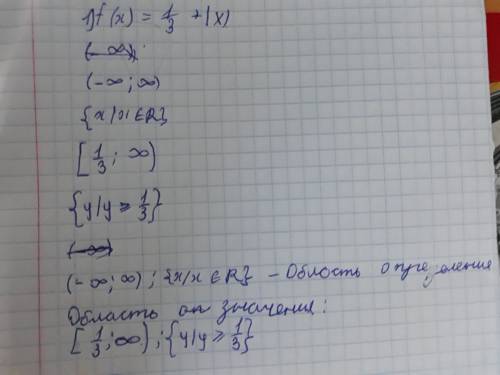 1) f(x) = 1/3 + |x|
(-∞);
(-∞; ∞)
{x/x ∈ R}
[1/3; ∞)
{y/y ≥ 1/3}
(-∞)
(-∞; ∞); {x/x ∈ R} - Облость определения
Область оп значения:
[1/3; ∞); {y/y ≥ 1/3}